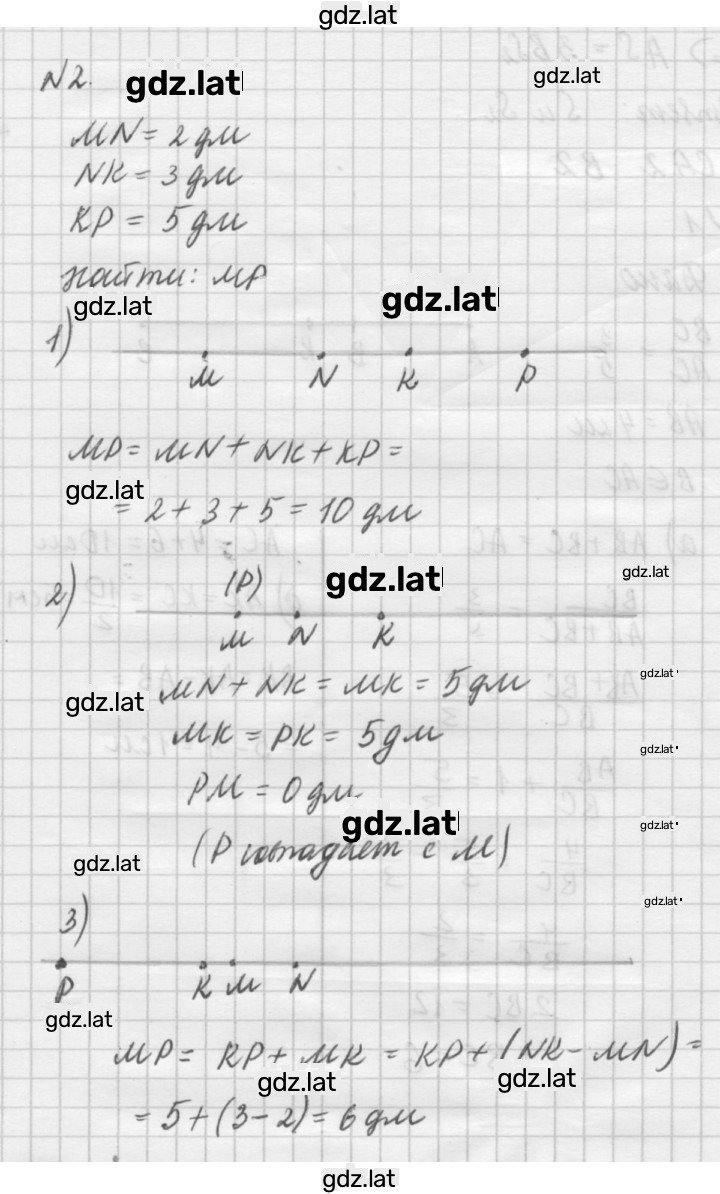 gdz.lat
N2. gdz.lat gdz.lat
MN = 2 дм
NK = 3 дм
KP = 5 дм
найти: MP
gdz.lat gdz.lat
1)
M N K P
MP = MN + NK + KP =
gdz.lat
= 2 + 3 + 5 = 10 дм
2) (P) gdz.lat gdz.lat
M N K
gdz.lat
MN + NK = MK = 5 дм
gdz.lat
MK = PK = 5 дм
gdz.lat
PM = 0 дм.
gdz.lat gdz.lat
(P совпадает с M)
gdz.lat
gdz.lat
3)
P K M N
gdz.lat
MP = KP + MK = KP + (NK - MN) =
gdz.lat gdz.lat
= 5 + (3 - 2) = 6 дм
gdz.lat